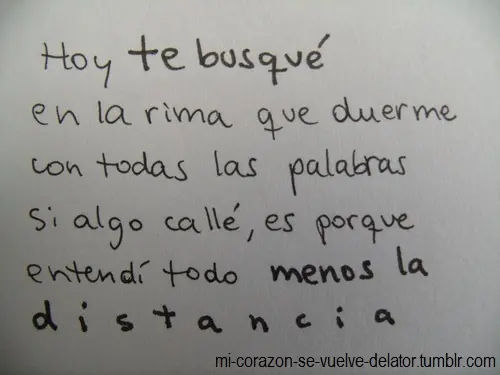 Hoy te busqué
en la rima que duerme
con todas las palabras
Si algo callé, es porque
entendí todo menos la
d i s t a n c i a
mi-corazon-se-vuelve-delator.tumblr.com